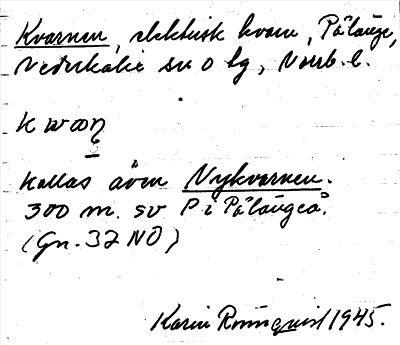 Kvarnen, elektrisk kvarn, Pålänge,
Nederkalix sn o lg, Norrb. l.
kwaη
Kallas även Nykvarnen.
300 m. sv P i Pålängeå.
(Gn. 32 NO)
Karin Rönnquist 1945.